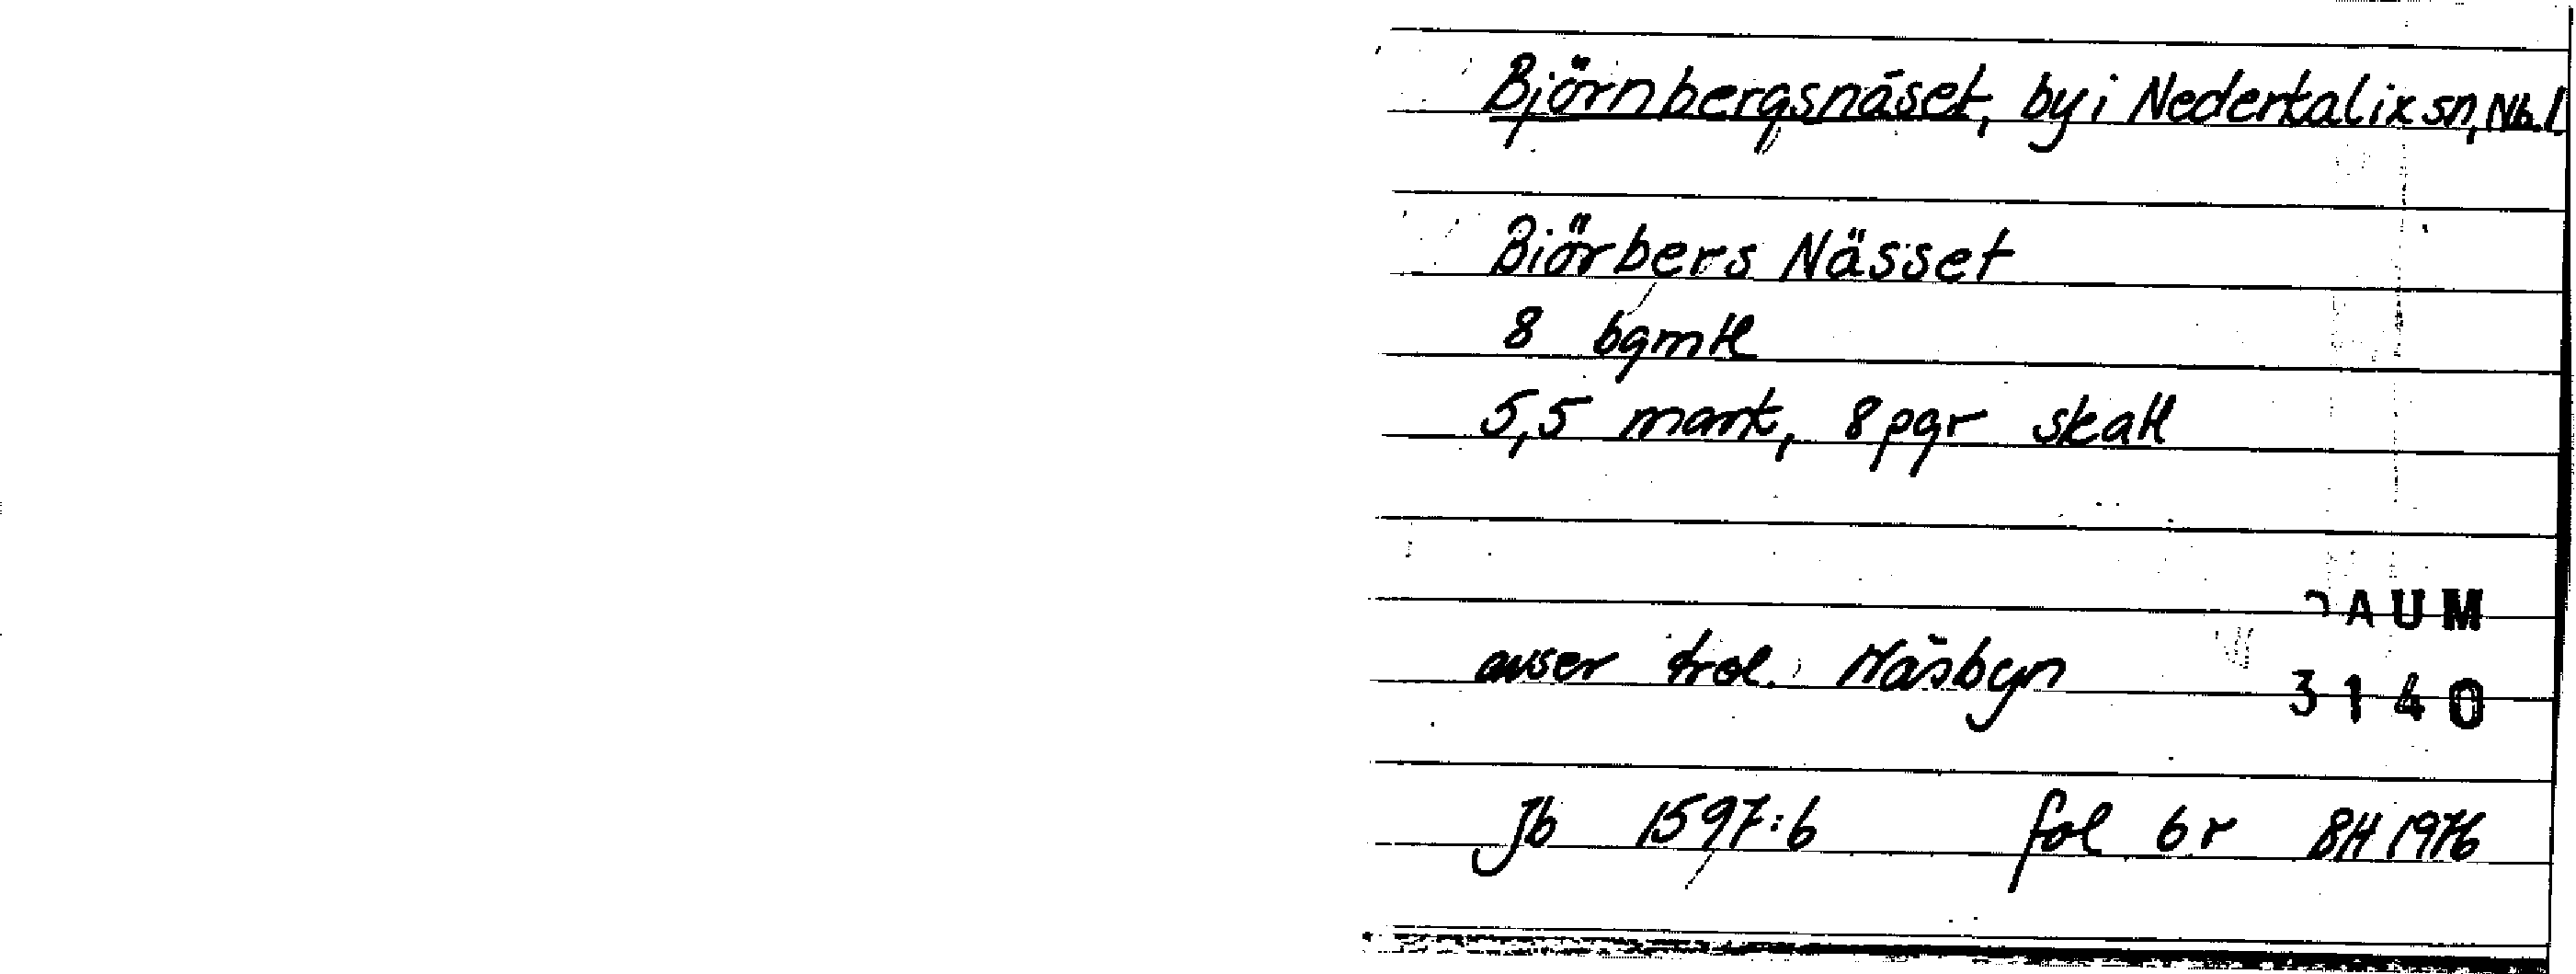 Björnbergsnäset, by i Nederkalix sn, Nb.l.
Biörbers Nässet
8 bgmtl
5,5 mark, 8 pgr skatt
DAUM
avser trol. Näsbyn
3140
Jb 1597:6 fol 6r BH 1976